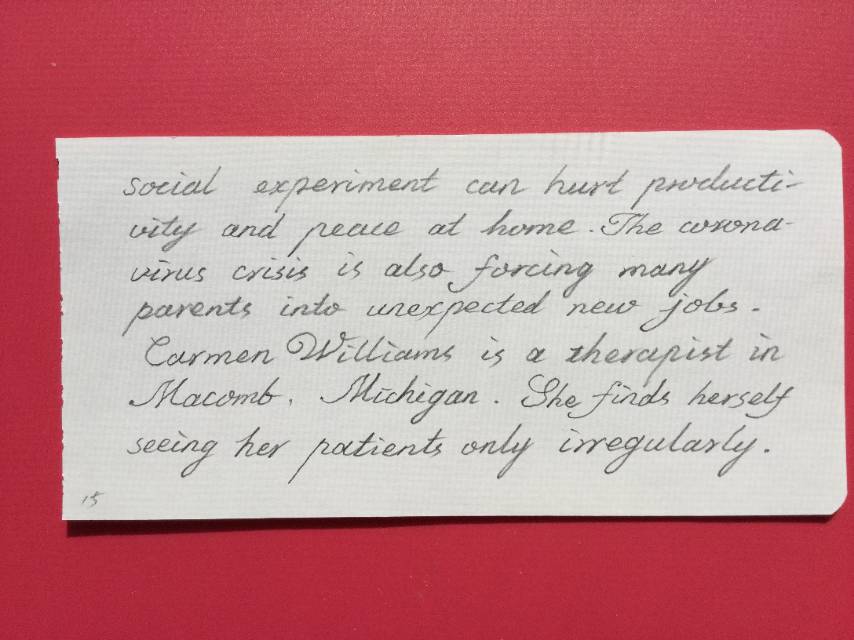 social experiment can hurt producti-
vity and peace at home. The corona-
virus crisis is also forcing many
parents into unexpected new jobs.
Carmen Williams is a therapist in
Macomb, Michigan. She finds herself
seeing her patients only irregularly.
15